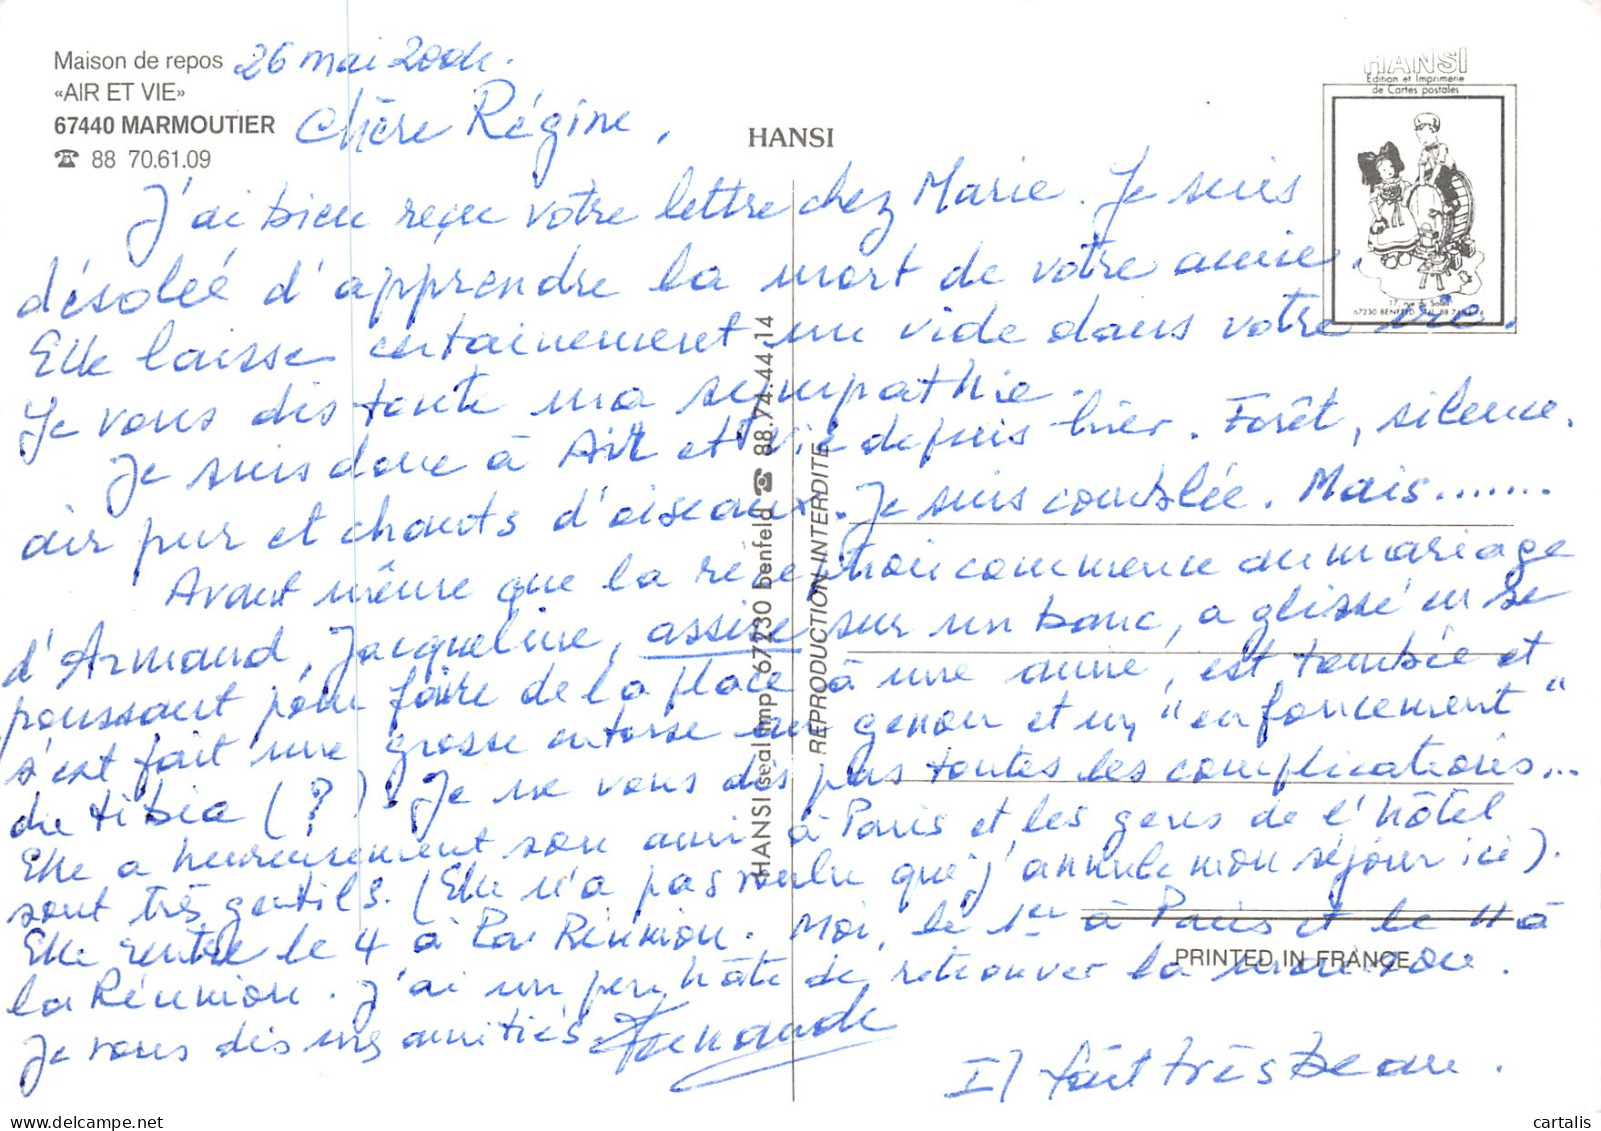 Maison de repos
«AIR ET VIE»
67440 MARMOUTIER
☎ 88 70.61.09
HANSI
HANSI
Edition et Imprimerie
de Cartes postales
17, rue du Soleil
67230 BENFELD Tél. 88 74
26 mai
Chère Régine,
J'ai bien reçu votre lettre chez Marie. Je suis
désolée d'apprendre la mort de votre amie.
Elle laisse certainement un vide dans votre vie.
Je vous dis toute ma sympathie.
Je suis donc à Air et Vie depuis hier. Forêt, silence.
air pur et chants d'oiseaux. Je suis comblée. Mais.......
Avant même que la réception commence au mariage
d'Armand, Jacqueline, assise sur un banc, a glissé en se
poussant pour faire de la place à une amie, est tombée et
s'est fait une grosse entorse au genou et un "enfoncement"
du tibia (?). Je ne vous dis pas toutes les complications...
Elle a heureusement son ami à Paris et les gens de l'hôtel
sont très gentils. (Elle n'a pas voulu que j'annule mon séjour ici).
Elle rentre le 4 à La Réunion. Moi, le 1er à Paris et le 11 à
la Réunion. J'ai un peu hâte de retrouver la maison.
Je vous dis mes amitiés Fernande
Il fait très beau.
HANSI seal imp. 67230 benfeld ☎ 88.74.44.14
REPRODUCTION INTERDITE
PRINTED IN FRANCE
cartalis www.delcampe.net